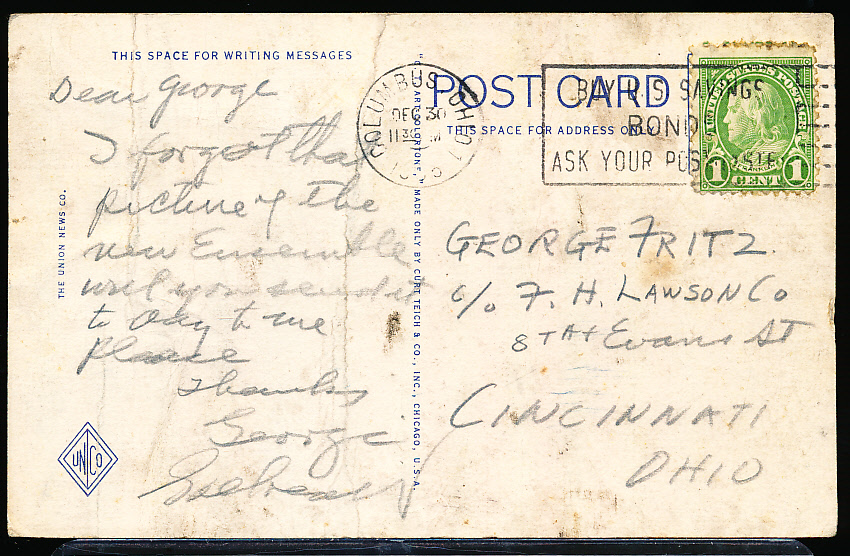 THIS SPACE FOR WRITING MESSAGES
Dear George
I forgot that
picture of the
new Ensemble
will you send it
to day to me
Please
Thanks
George
THE UNION NEWS CO.
UN CO
"C. T. ART-COLORTONE" MADE ONLY BY CURT TEICH & CO., INC., CHICAGO, U.S.A.
POST CARD
THIS SPACE FOR ADDRESS ONLY
COLUMBUS, OHIO
DEC 30
1130 M
BUY U.S. SAVINGS
BOND
ASK YOUR POSTMASTER
UNITED STATES POSTAGE
FRANKLIN
1 CENT 1
GEORGE FRITZ.
c/o F. H. LAWSON Co
8TH + Evans ST
CINCINNATI
OHIO